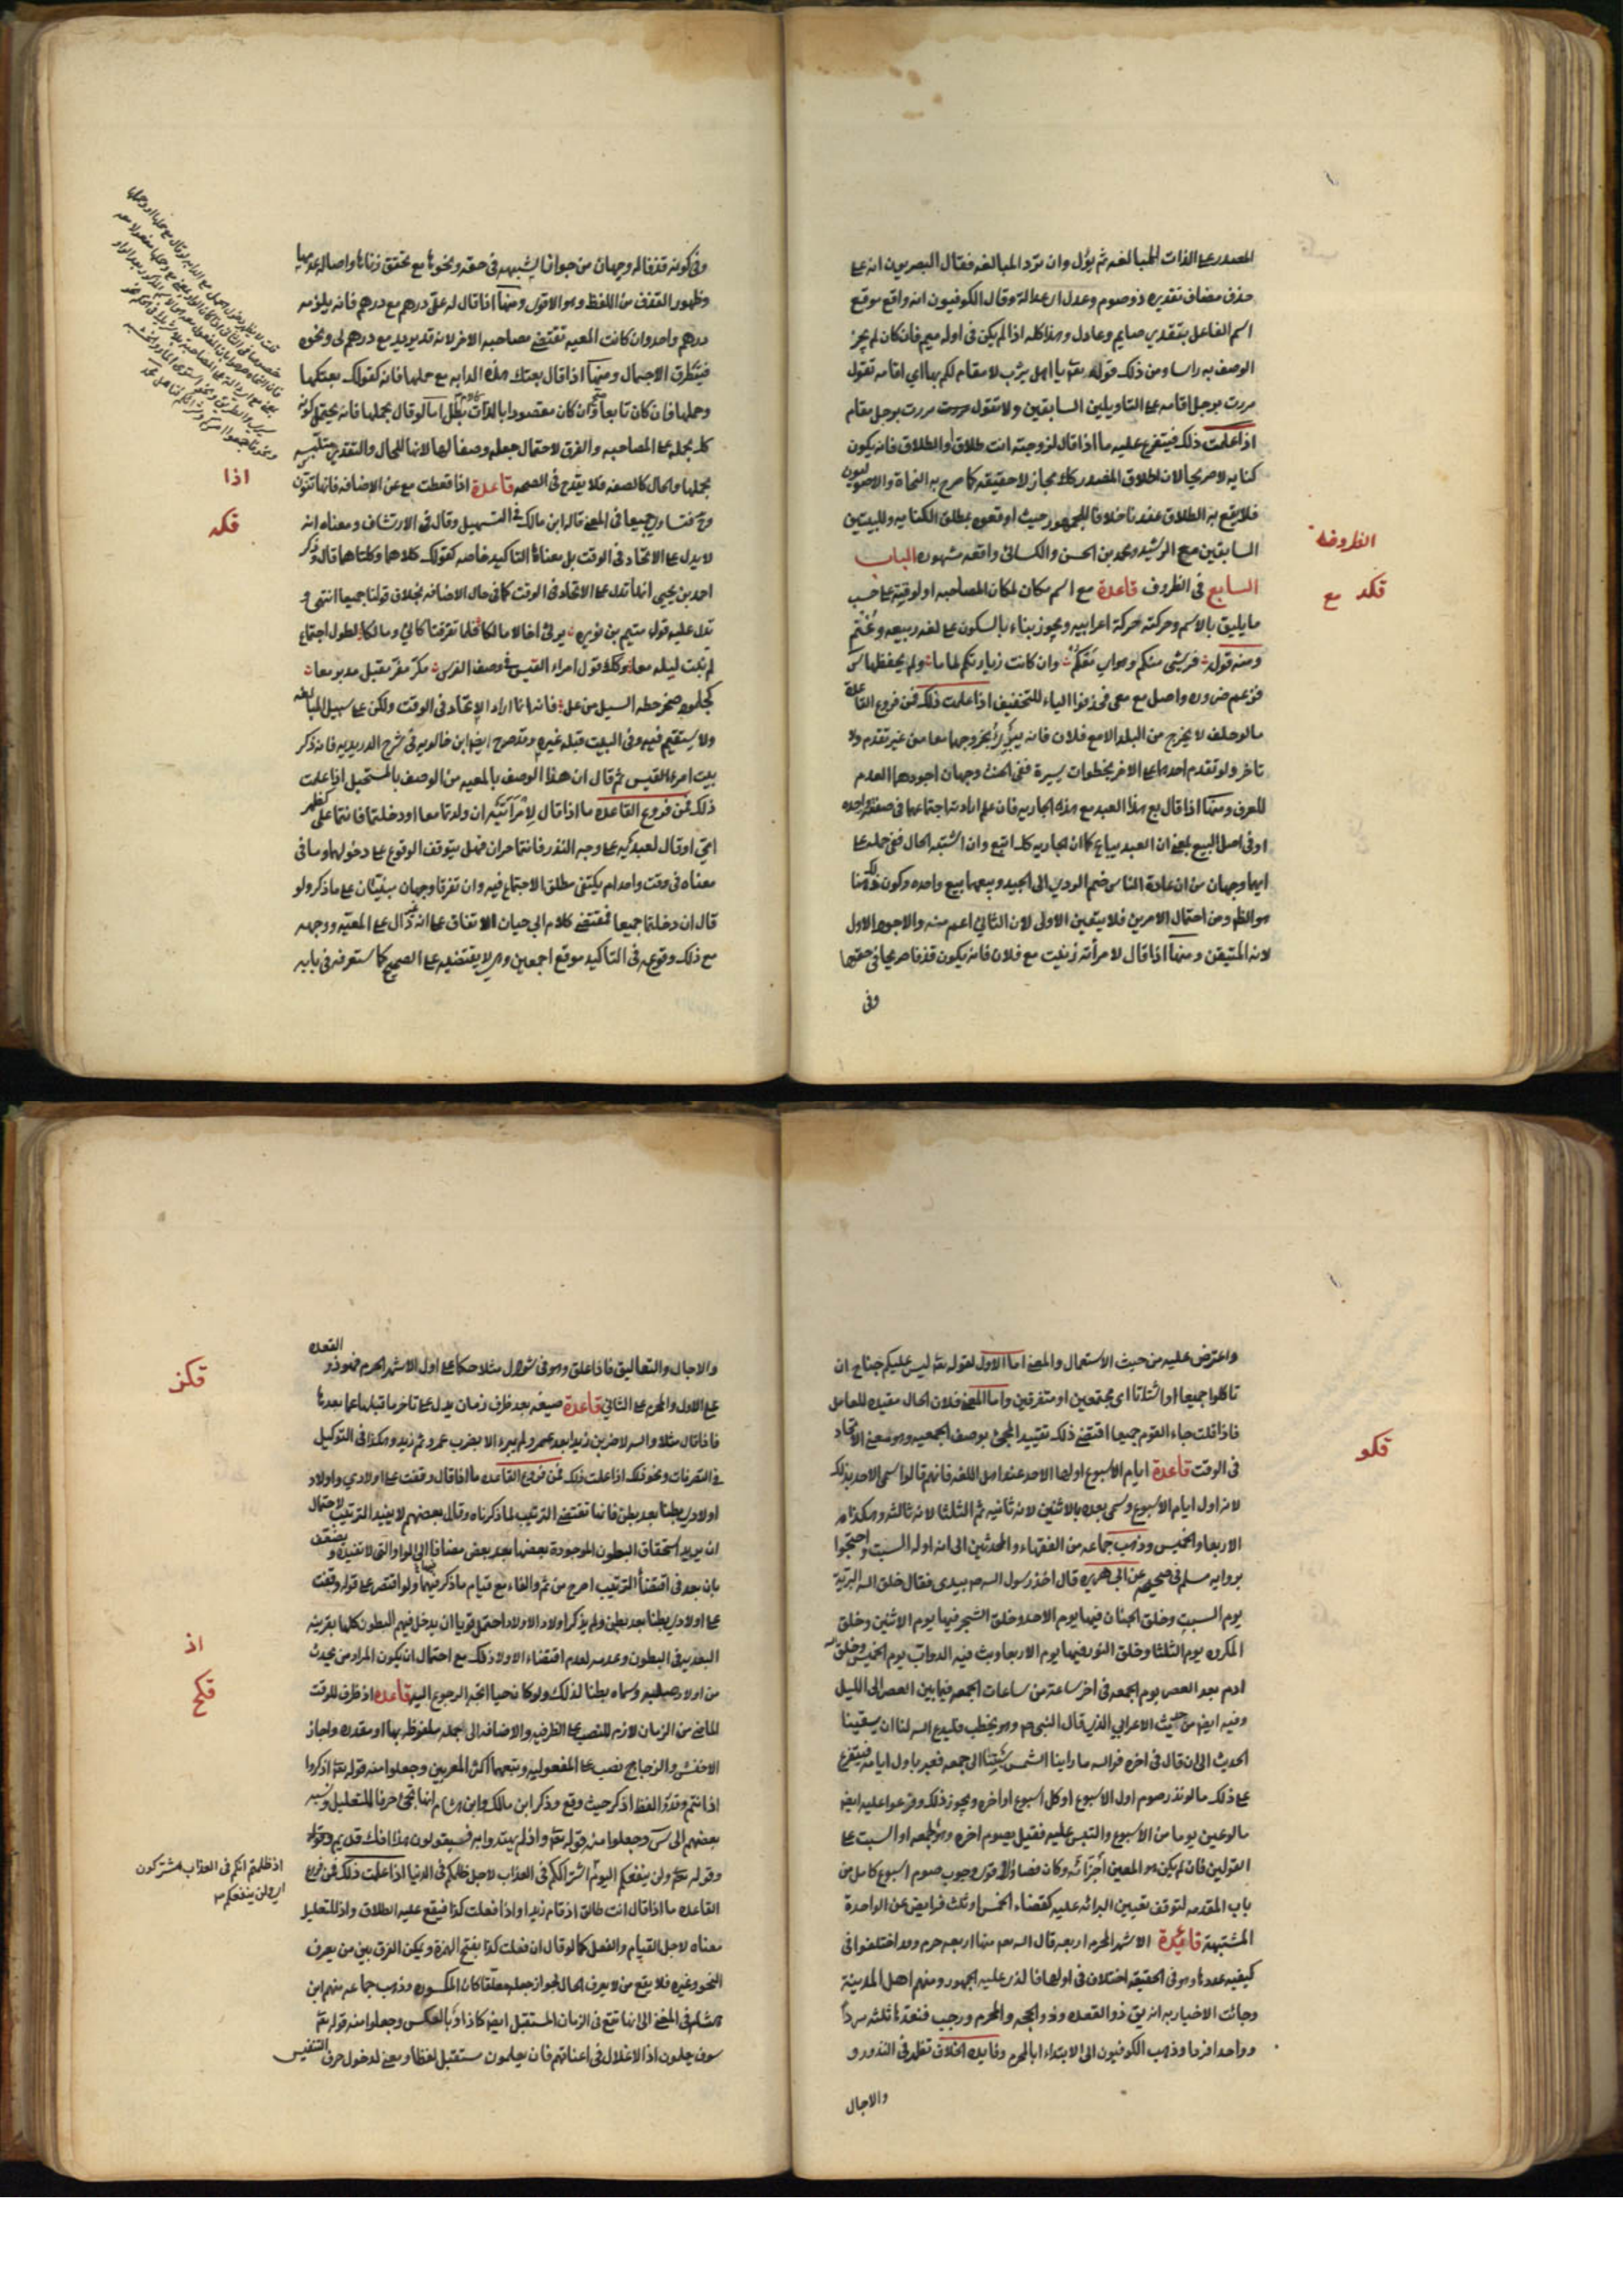 المصدر على الذات للمبالغه ثم يؤل وان لم ترد المبالغه فقال البصريون انه على
حذف مضاف تقديره ذو صوم وعدل اى عدالة وقال الكوفيون انه واقع موقع
اسم الفاعل بتقدير صايم وعادل وهذا كله اذا لم يكن فى اوله ميم فان كان لم يجز
الوصف به راسا ومن ذلك قوله تعا يا اهل يثرب لا مقام لكم بها اي اقامه تقول
مررت برجل اقامه على التاويلين السابقين ولا تقول مررت برجل مقام
اذا علمت ذلك فيتفرع عليه ما اذا قال لزوجته انت طلاق او الطلاق فانه يكون
كنايه لا صريحا لان اطلاق المصدر كذلك مجاز لا حقيقه كما صرح به النحاة والاصوليون
فلا يقع به الطلاق عندنا خلافا للجمهور حيث اوقعوه بمطلق الكنايه وللبيتين
السابقين مع الرشيد ومحمد بن الحسن والكسائى واقعه مشهوره الباب
السابع فى الظروف قاعدة مع اسم مكان لمكان المصاحبه او لوقته على حسب
ما يليق بالاسم وحركته حركة اعرابيه ويجوز بناءه بالسكون على لغه ربيعه وغنم
ومنه قوله فريشى منكم وهواى معكم وان كانت زيارتكم لماما ولم يحفظها س
فزعم ضروره واصل مع معى فحذفوا الياء للتخفيف اذا علمت ذلك فمن فروع القاعدة
ما لو حلف لا يخرج من البلد الا مع فلان فانه يبر بخروجهما معا من غير تقدم ولا
تاخر ولو تقدم احدهما على الاخر بخطوات يسيرة ففى الحنث وجهان اجودهما العدم
للعرف ومنها اذا قال بع هذا العبد مع هذه الجاريه فان علم ارادته اجتماعهما فى صفقة واحده
او فى اصل البيع بمعنى ان العبد يباع كما ان الجاريه كذلك اتبع وان اشتبه الحال ففى حمله على
ايهما وجهان من ان عادة الناس ضم الردي الى الجيد وبيعهما بيع واحده وكون ذلك هنا
هو الظاهر ومن احتمال الامرين فلا يتعين الاولى لان الثاني اعم منه والاجود الاول
لانه المتيقن ومنها اذا قال لامرأته زنيت مع فلان فانه يكون قذفا صريحا فى حقها
وفى
الظروف
قكد مع
وفى كونه قذفا له وجهان من جوابا
وظهور القذف من اللفظ وهو الاقوى ومنها اذا قال له علىّ درهم مع درهم فانه يلزمه
درهم واحد وان كانت المعيه تقتضى مصاحبه الاخر لانه قد يريد مع درهم لى ونحوه
فيتطرق الاحتمال ومنها اذا قال بعتك هذه الدابه مع حملها فانه كقولك بعتكها
وحملها فان كان تابعا صح وان كان مقصودا بالذات بطل اما لو قال بحملها فانه يحتمل كونه
كذلك بحمله على المصاحبه والفرق لاحتمال جعله وصفا لها لانها للحال والتقدير متلبسه
بحملها والحال كالصفه فلا يقدح فى الصحه قاعدة اذا قطعت مع عن الاضافه فانها تنون
وح فتساوى جميعا فى المعنى قاله ابن مالك فى التسهيل وقال فى الارتشاف ومعناه انه
لا يدل على الاتحاد فى الوقت بل معناها التاكيد خاصه كقولك كلاهما وكلتاهما قال وذكر
احمد بن يحيى انها تدل على الاتحاد فى الوقت كما فى حال الاضافه بخلاف قولنا جميعا انتهى و
يدل عليه قول متمم بن نويره يرثى اخاه مالكا فلما تفرقنا كانى ومالكا لطول اجتماع
لم نبت ليله معا وكذلك قول امرء القيس فى وصف الفرس مكر مفر مقبل مدبر معا
كجلمود صخر حطه السيل من عل فانه انما اراد الاتحاد فى الوقت ولكن على سبيل المبالغه
ولا يستقيم فيه وفى البيت قبله غيره وقد صرح ايضا ابن خالويه فى شرح الدريديه فانه ذكر
بيت امرء القيس ثم قال ان هذا الوصف بالمعيه من الوصف بالمستحيل اذا علمت
ذلك فمن فروع القاعده ما اذا قال لامرأتيه ان ولدتما معا او دخلتما فانتما على كظهر
امى او قال لعبديه على وجه النذر فانتما حران فهل يتوقف الوقوع على دخولهما وما فى
معناه فى وقت واحد ام يكتفى مطلق الاجتماع فيه وان تفرقا وجهان مبنيان على ما ذكر ولو
قال ان دخلتما جميعا فمقتضى كلام ابي حيان الاتفاق على انه غير دال على المعيه ووجهه
مع ذلك وقوعه فى التاكيد موقع اجمعين وهى لا يقتضيه على الصحيح كما ستعرفه فى بابه
اذا
قكه
واعترض عليه من حيث الاستعمال والمعنى اما الاول لقوله تعا ليس عليكم جناح ان
تاكلوا جميعا او اشتاتا اى مجتمعين او متفرقين واما المعنى فلان الحال مقيده للعامل
فاذا قلت جاء القوم جميعا اقتضى ذلك تقييد المجئ بوصف الجمعيه وهو معنى الاتحاد
فى الوقت قاعدة ايام الاسبوع اولها الاحد عند اهل اللغه فانهم قالوا سمى الاحد بذلك
لانه اول ايام الاسبوع وسمى بعده بالاثنين لانه ثانيه ثم الثلثا لانه ثالثه وهكذا
الاربعا والخميس وذهب جماعه من الفقهاء والمحدثين الى انه اوله السبت واحتجوا
بروايه مسلم فى صحيحه عن ابى هريره قال اخذ رسول الله ص بيدى فقال خلق الله البرية
يوم السبت وخلق الجبال فيها يوم الاحد وخلق الشجر فيها يوم الاثنين وخلق
المكروه يوم الثلثا وخلق النور فيها يوم الاربعا وبث فيه الدواب يوم الخميس وخلق
ادم بعد العصر يوم الجمعه فى اخر ساعة من ساعات الجمعه فيما بين العصر الى الليل
وفيه ايضا من حديث الاعرابي الذي قال النبى ص وهو يخطب فليدع الله لنا ان يسقينا
الحديث الى ان قال فى اخره فوالله ما راينا الشمس سبتنا الى جمعه فعبر باول ايامه فيتفرع
على ذلك ما لو نذر صوم اول الاسبوع او كل اسبوع او اخره ويجوز ذلك وفرعوا عليه ايضا
ما لو عين يوما من الاسبوع والتبس عليه فقيل يصوم اخره وهو الجمعه او السبت على
القولين فان لم يكن هو المعين اجزائه وكان قضاء والاقوى وجوب صوم اسبوع كامل من
باب المقدمه لتوقف تعيين البرائه عليه كقضاء الخمس او ثلث فرايض عن الواحدة
المشتبهة قاعدة الاشهر الحرم اربعه قال الله تعا منها اربعه حرم وقد اختلفوا فى
كيفيه عددها وهو فى الحقيقه اختلاف فى اولها فالذى عليه الجمهور ومنهم اهل المدينة
وجائت الاخبار به انه يق ذو القعده وذو الحجه والمحرم ورجب فنعدها ثلثه سردا
وواحدا فردا وذهب الكوفيون الى الابتداء بالمحرم وفايده الخلاف تظهر فى النذور و
والاجال
قكو
والاجال والتعاليق فاذا علق وهو فى شوال مثلا حكما على اول الاشهر الحرم فهو ذو القعده
على الاول والمحرم على الثاني قاعدة صيغه بعد ظرف زمان يدل على تاخر ما قبلها عما بعدها
فاذا قال مثلا والله لاضربن زيدا بعد عمرو لم يبرء الا بضرب عمرو ثم زيد وهكذا فى التوكيل
فى التصرفات ونحو ذلك اذا علمت ذلك فمن فروع القاعده ما اذا قال وقفت على اولادي واولاد
اولادى بطنا بعد بطن فانها تقتضى الترتيب لما ذكرناه وقال بعضهم لا يفيد الترتيب لاحتمال
ان يريد استحقاق البطون الموجودة بعضها بعد بعض مضافا الى الواو التى لا تفيده ويضعف
بان بعد فى اقتضاء الترتيب اصرح من ثم والفاء مع قيام ما ذكر فيهما ولو اقتصر على قوله وقفت
على اولادى بطنا بعد بطن ولم يذكر اولاد الاولاد احتمل قويا ان يدخل فيهم البطون كلها بقرينه
البعديه فى البطون وعدمه لعدم اقتضاء الاولاد ذلك مع احتمال ان يكون المراد من يحدث
من اولاد صلبه وسماه بطنا لذلك ولو كان حيا اتجه الرجوع اليه قاعده اذ ظرف للوقت
الماضى من الزمان لازم للنصب على الظرفيه والاضافه الى جمله ملفوظه بها او مقدره واجاز
الاخفش والزجاج نصبه على المفعوليه وتبعهما اكثر المعربين وجعلوا منه قوله تعا اذكروا
اذ انتم وقدروا لفظ اذكر حيث وقع وذكر ابن مالك وابن هشام انها تجئ حرفا للتعليل ونسبه
بعضهم الى س وجعلوا منه قوله تعا واذ لم يهتدوا به فسيقولون هذا افك قديم وقوله
وقوله تعا ولن ينفعكم اليوم اشتراككم فى العذاب لاجل ظلمكم فى الدنيا اذا علمت ذلك فمن فروع
القاعده ما اذا قال انت طالق اذ قام زيد او اذ فعلت كذا فيقع عليه الطلاق واذ للتعليل
معناه لاجل القيام والفعل كما لو قال ان فعلت كذا بفتح الهمزة ويمكن الفرق بين من يعرف
النحو وغيره فلا يقع من لا يعرف الحال لجواز جعله معلقا كان المكسوره وذهب جماعه منهم ابن
هشام فى المغنى الى انها تقع فى الزمان المستقبل ايضا كاذا وبالعكس وجعلوا منه قوله تعا
سوف يعلمون اذ الاغلال فى اعناقهم فان يعلمون مستقبل لفظا ومعنى لدخول حرف التنفيس
اذ ظلمتم انكم فى العذاب مشتركون
اى ولن ينفعكم
قكز
اذ
قكح